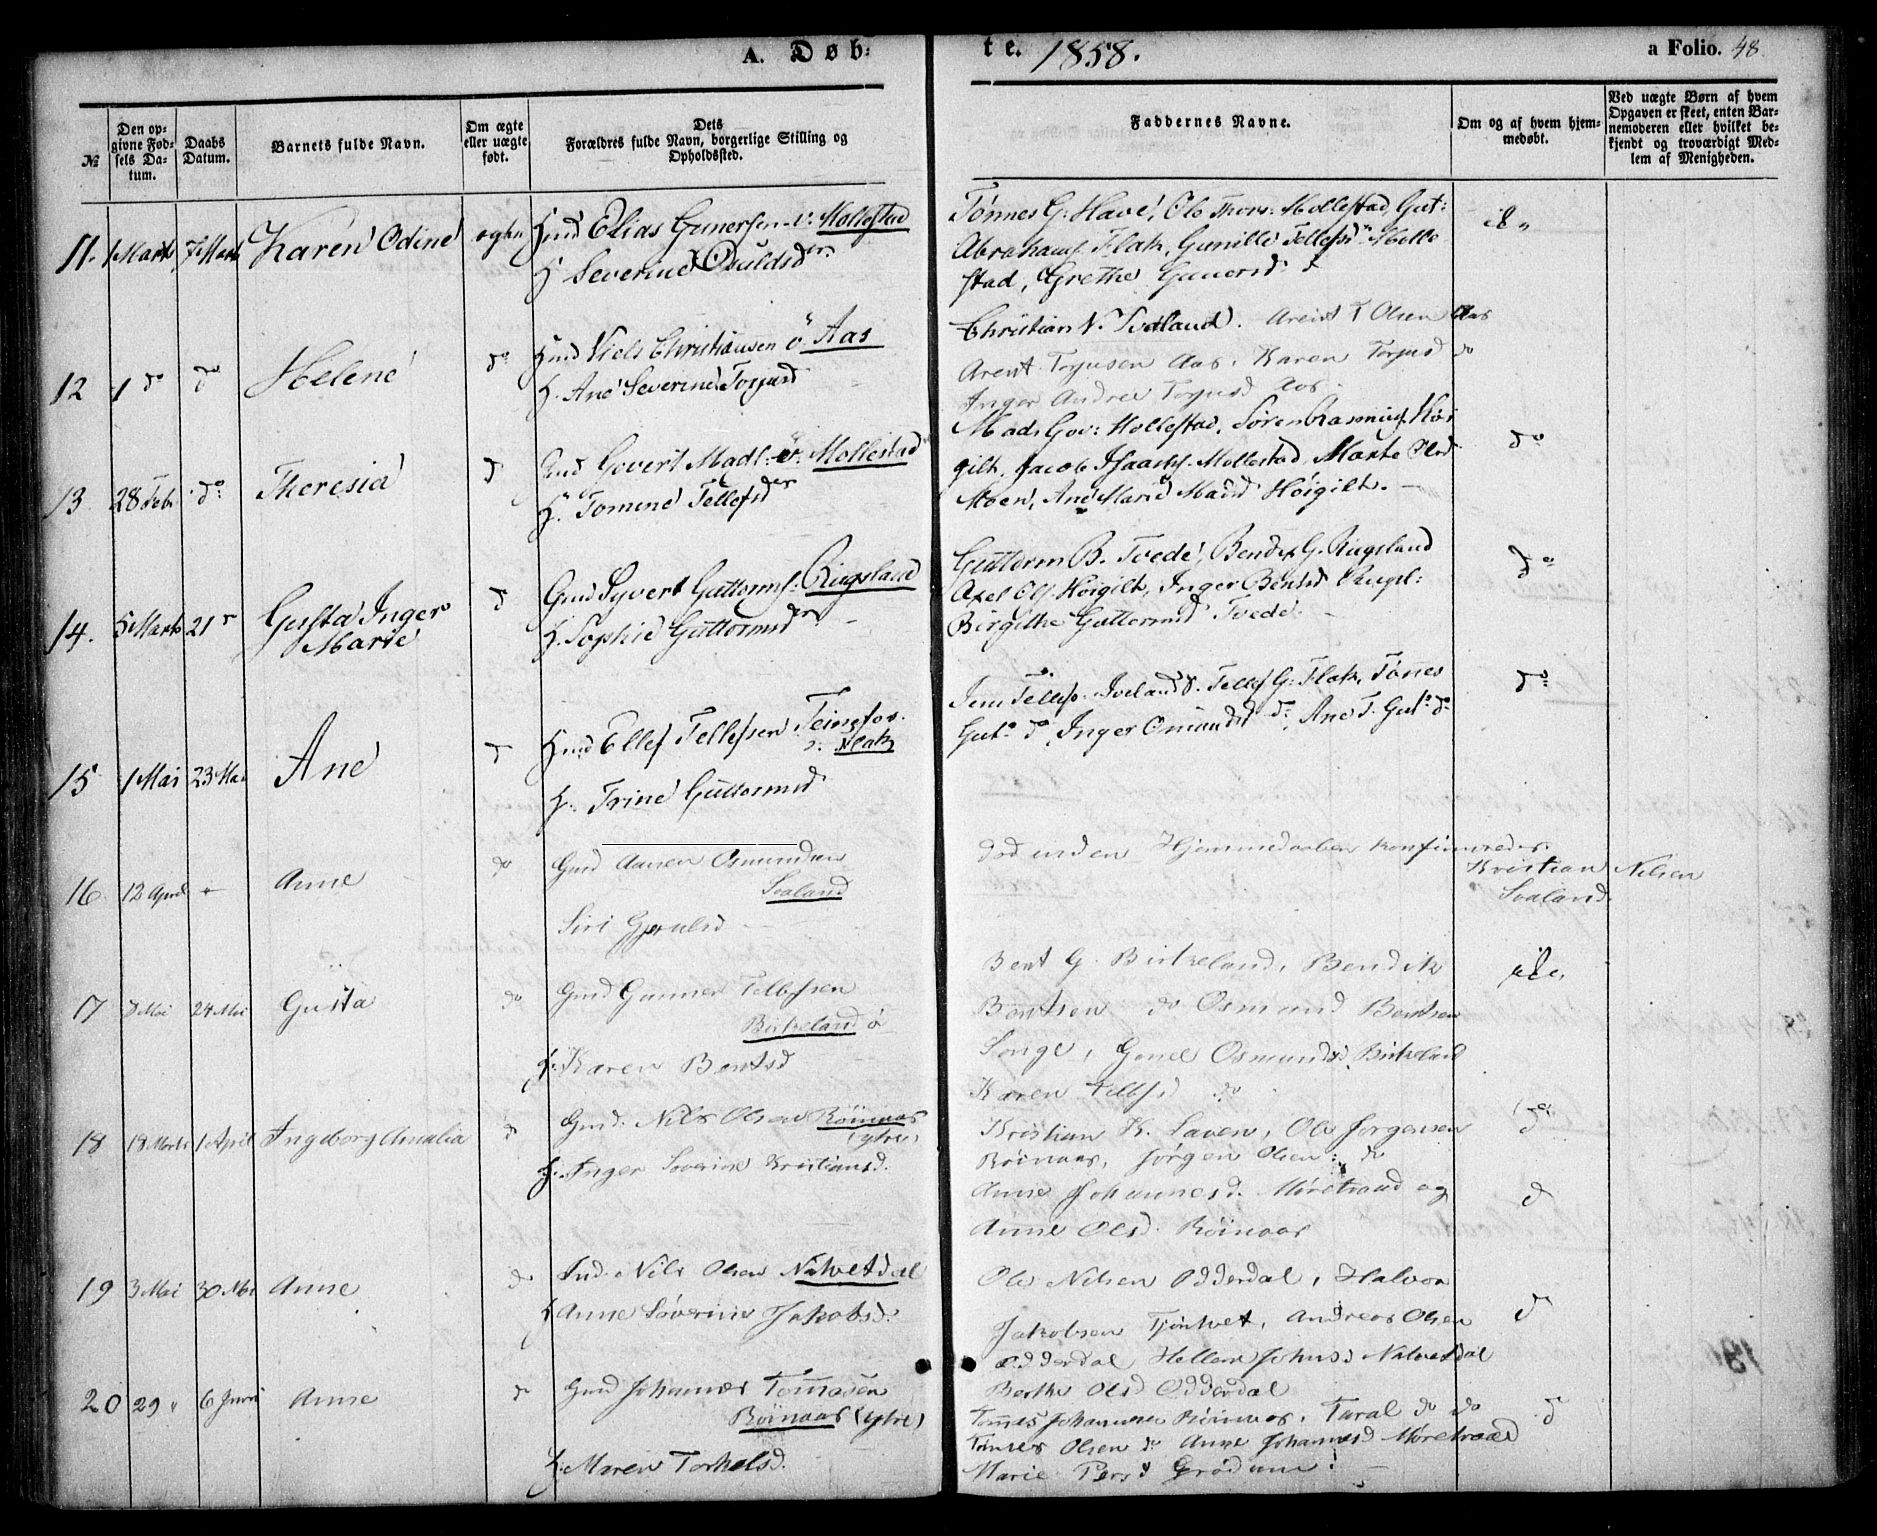 A. Døb:
te. 1858.
a Folio. 48
№
Den opgivne Fødsels Datum.
Daabs Datum.
Barnets fulde Navn.
Om ægte eller uægte født.
Dets Forældres fulde Navn, borgerlige Stilling og Opholdssted.
Faddernes Navne.
Om og af hvem hjemmedøbt.
Ved uægte Børn af hvem Opgaven er skeet, enten Barnemoderen eller hvilket bekjendt og troværdigt Medlem af Menigheden.
11. 1 Marts 7 Marts Karen Odine
Gmd Elias Gunersen Mollestad
H Severine Osuldsder.
Tönnes G. Have, Ole Thors: Mollestad, Gut:
Abrahams Flak, Gunille Tellefsd Molle
stad, Grethe Guners d
12 1 do do Helene do
Gmd Niels Christiansen ö Aas
H. Ane Severine Torjusd
Christian N. Tvetland. Arent T Olsen Aas
Arent Torjusen Aas, Karen Torjusd do
Inger Andrea Torjusd Aas
13 28 Febr do Theresia d
Gmd Govert Mads: Mollestad
H. Tomine Tellefsder
Mads Gov: Mollestad, Sören Rasmus Höi
gilt, Jacob Isaachs. Mollestad, Marte Olsd
Moen, Ane Marie Höigilt.
do
14. 5 Marts 21 Gusta Inger Marie d
Gmd Syvert Guttorms. Rugsland
H. Sophie Guttormsder
Guttorm B. Tvede, Bendix G. Rugsland
Axel Ols. Höigilt, Inger Bentsd Rugsl:
Birgithe Guttormsd Tvede.
do
15 1 Mai 23 Mai Ane d
Gmd Ellef Tellefsen
Flak
H. Trine Guttormsd
Jens Tellefs. Iveland, Tellef G: Flak, Tönes
Gut. do, Inger Omundsd do, Ane T. Gut. do
do
16 12 April Anne do
Gmd Aanen Osmundsen
Svaland
Siri Gjerulsd
Död inden Hjemmedaaben konfirmeredes.
Kristian Nilsen
Svaland
17 Mai 24 Mai Gusta do
Gmd Gunner Tellefsen
Birkeland ö
H. Karen Bentsd
Bent G. Birkeland, Bendik
Bentsen do Osmund Bentsen
Songe, Gonel Osmundsd Birkeland
Karen Tellefsd do
18 18 Marts 1 April Ingeborg Amalia d
Gmd. Nils Olsen Röinaas
(ytre)
H. Inger Severine Kristiansd.
Kristian K. Saven, Ole Jörgensen
Röinaas, Jörgen Olsen do
Anne Johannesd. Möretraad og
Anne Olsd. Röinaas
d
19 3 Mai 30 Mai Anne d
Gmd. Nils Olsen Nalvetdal
H Anne Söverine Jakobsd.
Ole Nilsen Odderdal, Halvor
Jakobsen Tjönhvet, Andreas Olsen
Odderdal Hellene Johnsd Nalvetdal
Berthe Olsd Odderdal
d
20 29 6 Juni Anne d
Gmd Johannes Tomasen
Röinaas (ytre)
H. Maren Torkelsd.
Tomas Johannesen Röinaas, Taral do do
Tönnes Olsen do Anne Johannesd Möretraad
Marie Persd Grödum.
d